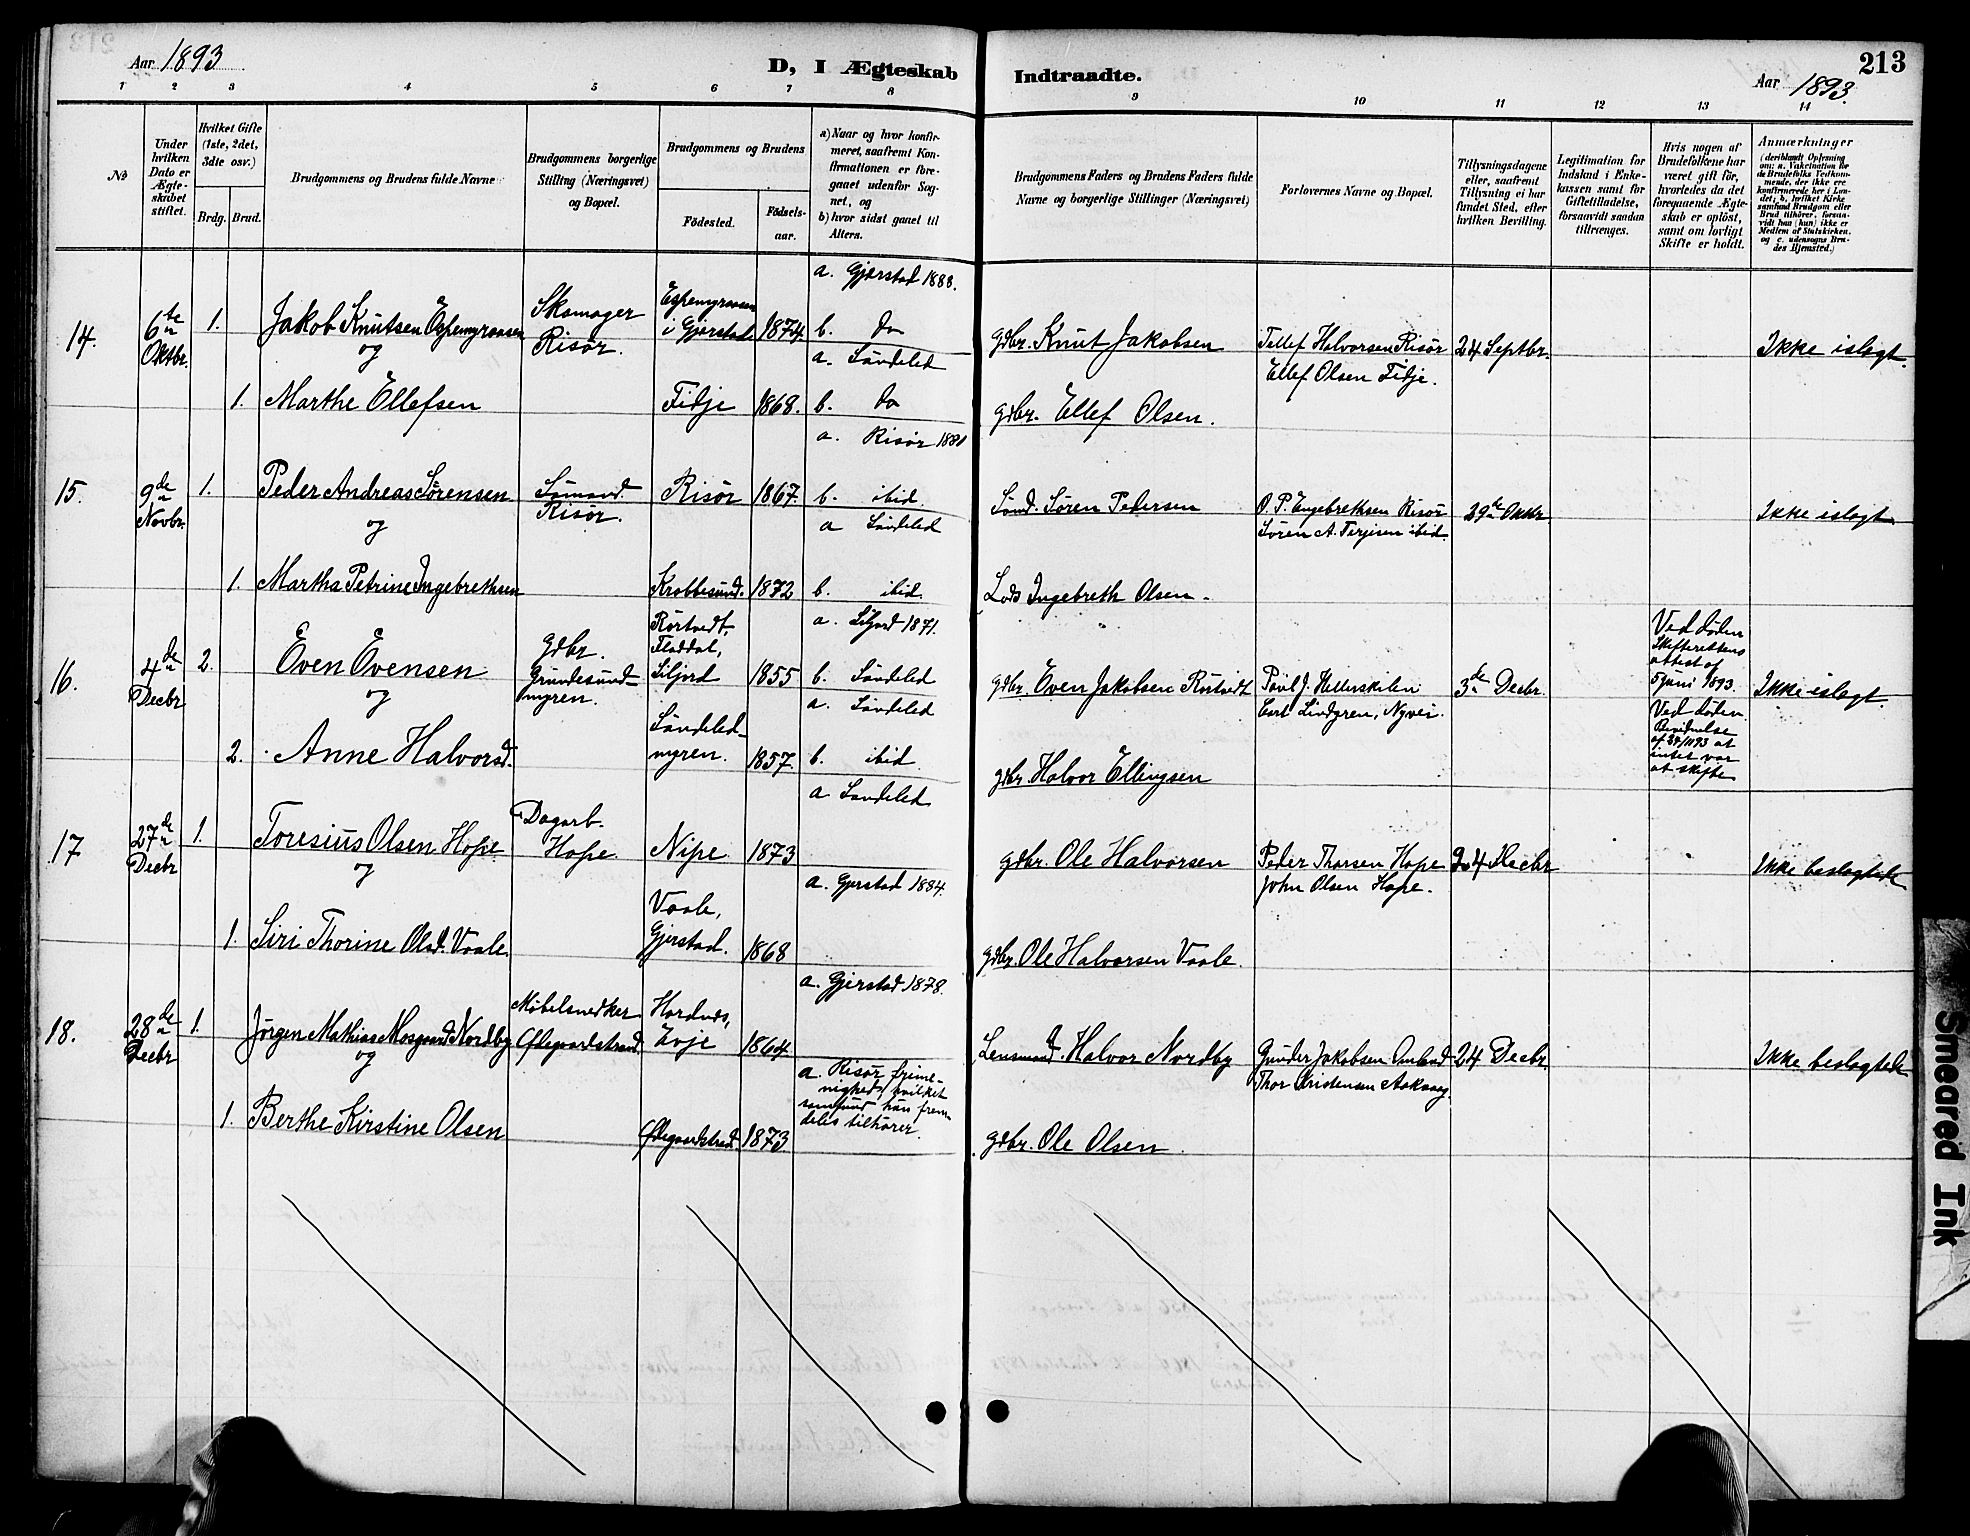 Aar 1893
D, I Ægteskab Indtraadte.
213
Aar 1893.
1 2 3 4 5 6 7 8 9 10 11 12 13 14
No
Under hvilken Dato er Ægteskabet stiftet.
Hvilket Gifte (1ste, 2det, 3die osv.)
Brdg. Brud.
Brudgommens og Brudens fulde Navne
Brudgommens borgerlige Stilling (Næringsvei) og Bopæl.
Brudgommens og Brudens
Fødested.
Fødsels-aar.
a) Naar og hvor konfirmeret, saafremt Konfirmationen er foregaaet udenfor Sognet, og
b) hvor sidst gaaet til Alters.
Brudgommens Faders og Brudens Faders fulde Navne og borgerlige Stillinger (Næringsvei)
Forlovernes Navne og Bopæl.
Tillysningsdagene eller, saafremt Tillysning ei har fundet Sted, efter hvilken Bevilling.
Legitimation for Indskud i Enkekassen samt for Giftetilladelse, forsaavidt saadan tiltrænges.
Hvis nogen af Brudefolkene har været gift før, hvorledes da det foregaaende Ægteskab er opløst, samt om lovligt Skifte er holdt.
Anmærkninger
(deriblandt Oplysning om: a. Vakcination for de Brudefolks Vedkommende, der ikke ere konfirmerede her i Landet; b. hvilket Kirkesamfund Brudgom eller Brud tilhører, forsaavidt han (hun) ikke er Medlem af Statskirken. og c. udensogns Brudes Hjemsted.)
a. Gjerstad 1888.
14. 6te Oktbr. 1. Jakob Knutsen Espemyraasen Skomager Risør. Espemyraasen i Gjerstad 1874. b. do Gdbr. Knut Jakobsen Tellef Halvorsen Risør 24 Septbr. Ikke islegt.
og a. Søndeled Ellef Olsen Fidje.
1. Marthe Ellefsen Fidje 1868. b. do gdbr. Ellef Olsen.
a. Risør 1881
15. 9de Novbr. 1. Peder Andreas Sørensen Sømand. Risør. Risør 1867. b. ibid. Sømd. Søren Pedersen O. P. Engebrethsen Risør 29de Oktbr Ikke islegt
og a Søndeled Søren A. Terjesen ibid.
1. Martha Petrine Ingebrethsen Krabbesund. 1872 b. ibid. Lods Ingebreth Olsen.
a. Siljord 1871.
16. 4de Decbr 2. Even Evensen gdbr. Grundesundmyren. Rørtvedt, Fladdal, Siljord 1855 b. Søndeled gdbr Even Jakobsen Rørtvedt Povl J. Hellerskilen 3de Decbr Ved døden Skifterettens attest af 5 juni 1893. Ikke islegt.
og a. Søndeled Carl Lindgren, Nyvei.
2. Anne Halvorsd. Søndeledmyren. 1857. b. ibid. gdbr Halvor Ellingsen Ved døden. Bevidnelse af 24/11 93 at intet var at skifte
a Søndeled
17 27de Decbr 1. Toresius Olsen Hope Dagarb. Hope. Nipe 1873 gdbr. Ole Halvorsen Peder Thorsen Hope 24 Decbr Ikke beslegtede
og a. Gjerstad 1884. John Olsen Hope.
1. Siri Thorine Olsd. Vaale. Vaale, Gjerstad. 1868 gdbr. Ole Halvorsen Vaale.
a. Gjerstad 1878.
18. 28de Decbr 1. Jørgen Mathias Mosgaard Nordby Møbelsnedker Ødegaardstrand. Hordnes, Evje 1864 Lensmand. Halvor Nordby Gunder Jakobsen 24 Decbr Ikke beslegtede
og a. Risør frimenighed, hvilket samfund hun fremdeles tilhører. Thor Kristensen
1. Berthe Kirstine Olsen Ødegaardstrand. 1873. gdbr. Ole Olsen.
Smeared Ink